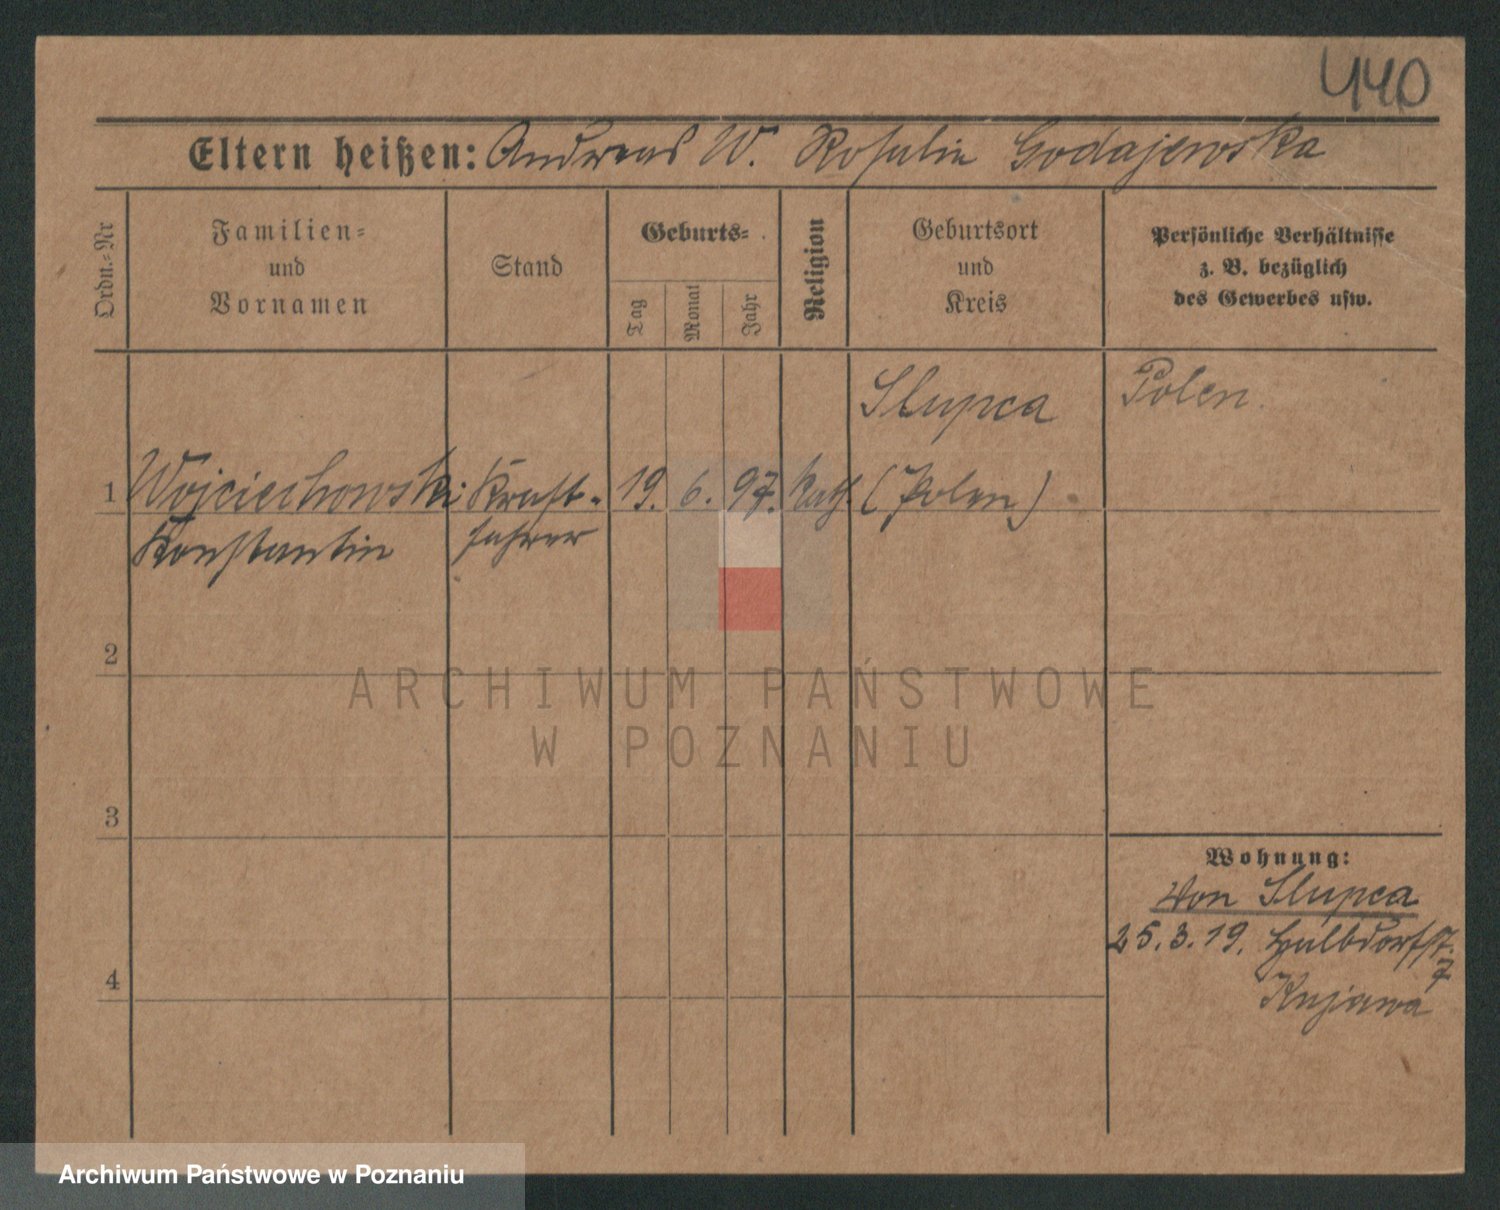 440
Eltern heißen: Andreas W. Rosalie Godajewska
Ordn.-Nr
Familien-
und
Vornamen
Stand
Geburts-
Tag
Monat
Jahr
Religion
Geburtsort
und
Kreis
Persönliche Verhältnisse
z. B. bezüglich
des Gewerbes usw.
Slupca
Polen.
1 Wojciechowski Kraft- 19. 6. 97. Kath. (Polen)
Konstantin fahrer
2
3
4
Wohnung:
Von Slupca
25.3.19.
7
Kujawa
ARCHIWUM PAŃSTWOWE
W POZNANIU
Archiwum Państwowe w Poznaniu